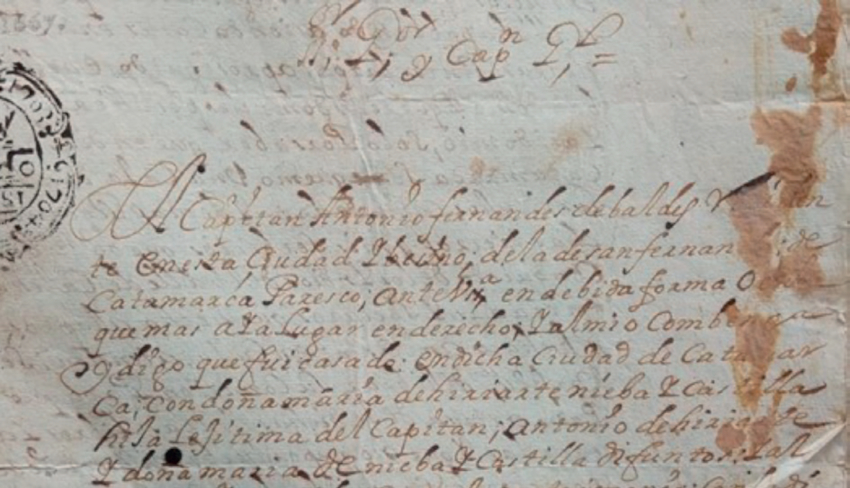 S.r Gov.or
y Cap.n G.l
El Capitan Antonio fernandes debaldes
te En esta Ciudad Y besino, de la de san fernan de
Catamarca Paresco, ante Vs.a en debida forma
que mas aya lugar en derecho, Y al mio Combenga
y digo que fui casado en dicha Ciudad de Catamar
ca, con doña maria de hiriarte nieba Y Castilla
hija Lejitima del Capitan, Antonio de hiriarte
Y doña maria de nieba Y Castilla difuntos,